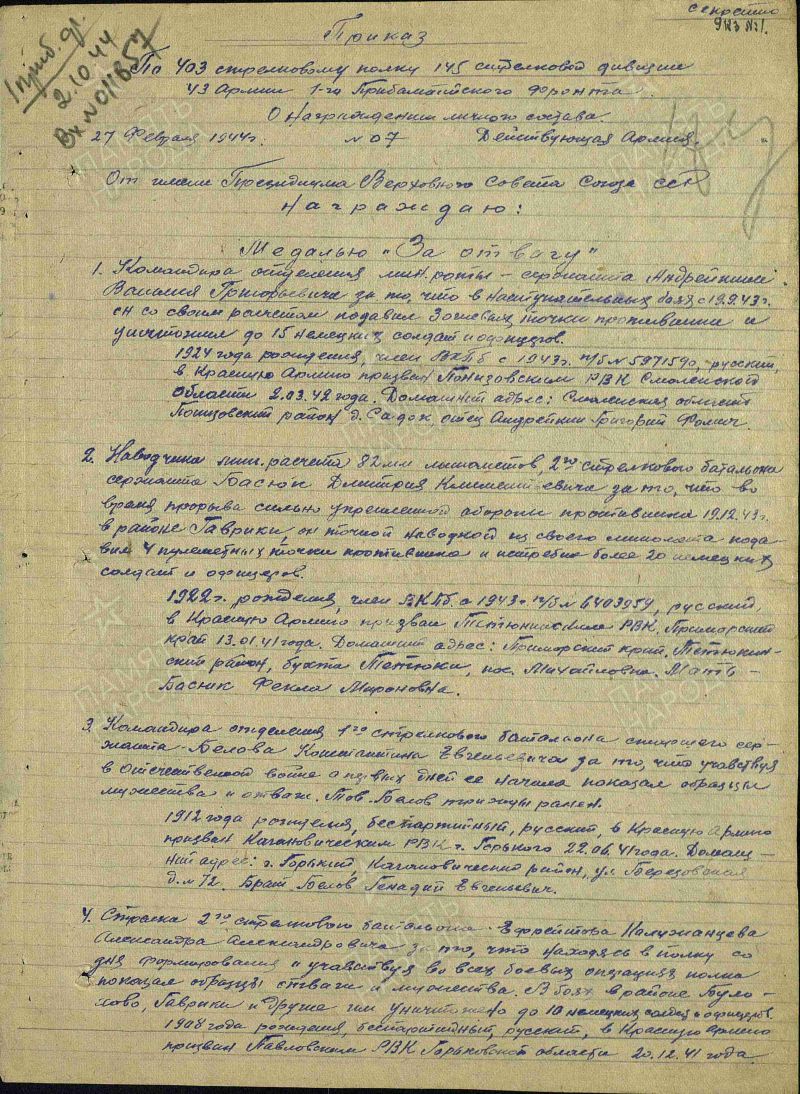 секретно
экз №1.
1 приб. др.
2.10.44
Вх №011857
Приказ
По 403 стрелковому полку 145 стрелковой дивизии
43 Армии 1-го Прибалтийского Фронта.
О награждении личного состава.
27 Февраля 1944г. №07 Действующая Армия.
От имени Президиума Верховного Совета Союза ССР
Награждаю:
Медалью "За отвагу"
1. Командира отделения мин. роты – сержанта Андрейкина
Василия Григорьевича за то, что в наступательных боях с 19.9.43г.
он со своим расчетом подавил 3 огневых точки противника и
уничтожил до 15 немецких солдат и офицеров.
1924 года рождения, член ВКПб с 1943г. п/б № 5971590, русский,
в Красную Армию призван Понизовским РВК Смоленской
области 2.03.42 года. Домашний адрес: Смоленская область
Понизовский район д. Садок, отец Андрейкин Григорий Фомич.
2. Наводчика мин. расчета 82мм минометов, 2го стрелкового батальона
сержанта Басюк Дмитрия Климентьевича за то, что во
время прорыва сильно укрепленной обороны противника 19.12.43г.
в районе Гаврики, он точной наводкой из своего миномета пода-
вил 4 пулеметных точки противника и истребил более 20 немецких
солдат и офицеров.
1922г. рождения, член ВКПб с 1943г. п/б № 6403954, русский,
в Красную Армию призван Тетюхинским РВК, Приморский
край 13.01.41 года. Домашний адрес: Приморский край, Тетюхин-
ский район, бухта Тетюхи, пос. Михайловка. Мать –
Басюк Фекла Мироновна.
3. Командира отделения 1го стрелкового батальона старшего сер-
жанта Белова Константина Евгеньевича за то, что участвуя
в Отечественной войне с первых дней ее начала показал образцы
мужества и отваги. Тов. Белов трижды ранен.
1912 года рождения, беспартийный, русский, в Красную Армию
призван Кагановическим РВК г. Горького 22.06.41 года. Домаш-
ний адрес: г. Горький, Кагановический район, ул. Березовская
д. № 72. Брат Белов Генадий Евгеньевич.
4. Стрелка 2го стрелкового батальона Ефрейтора
Александра Александровича за то, что находясь в полку со
дня формирования и участвуя во всех боевых операциях полка
показал образцы отваги и мужества. В боях в районе Було-
хово, Гаврики и другие им уничтожено до 10 немецких солдат и офицеров.
1908 года рождения, беспартийный, русский, в Красную Армию
призван Павловским РВК Горьковской области 20.12.41 года.